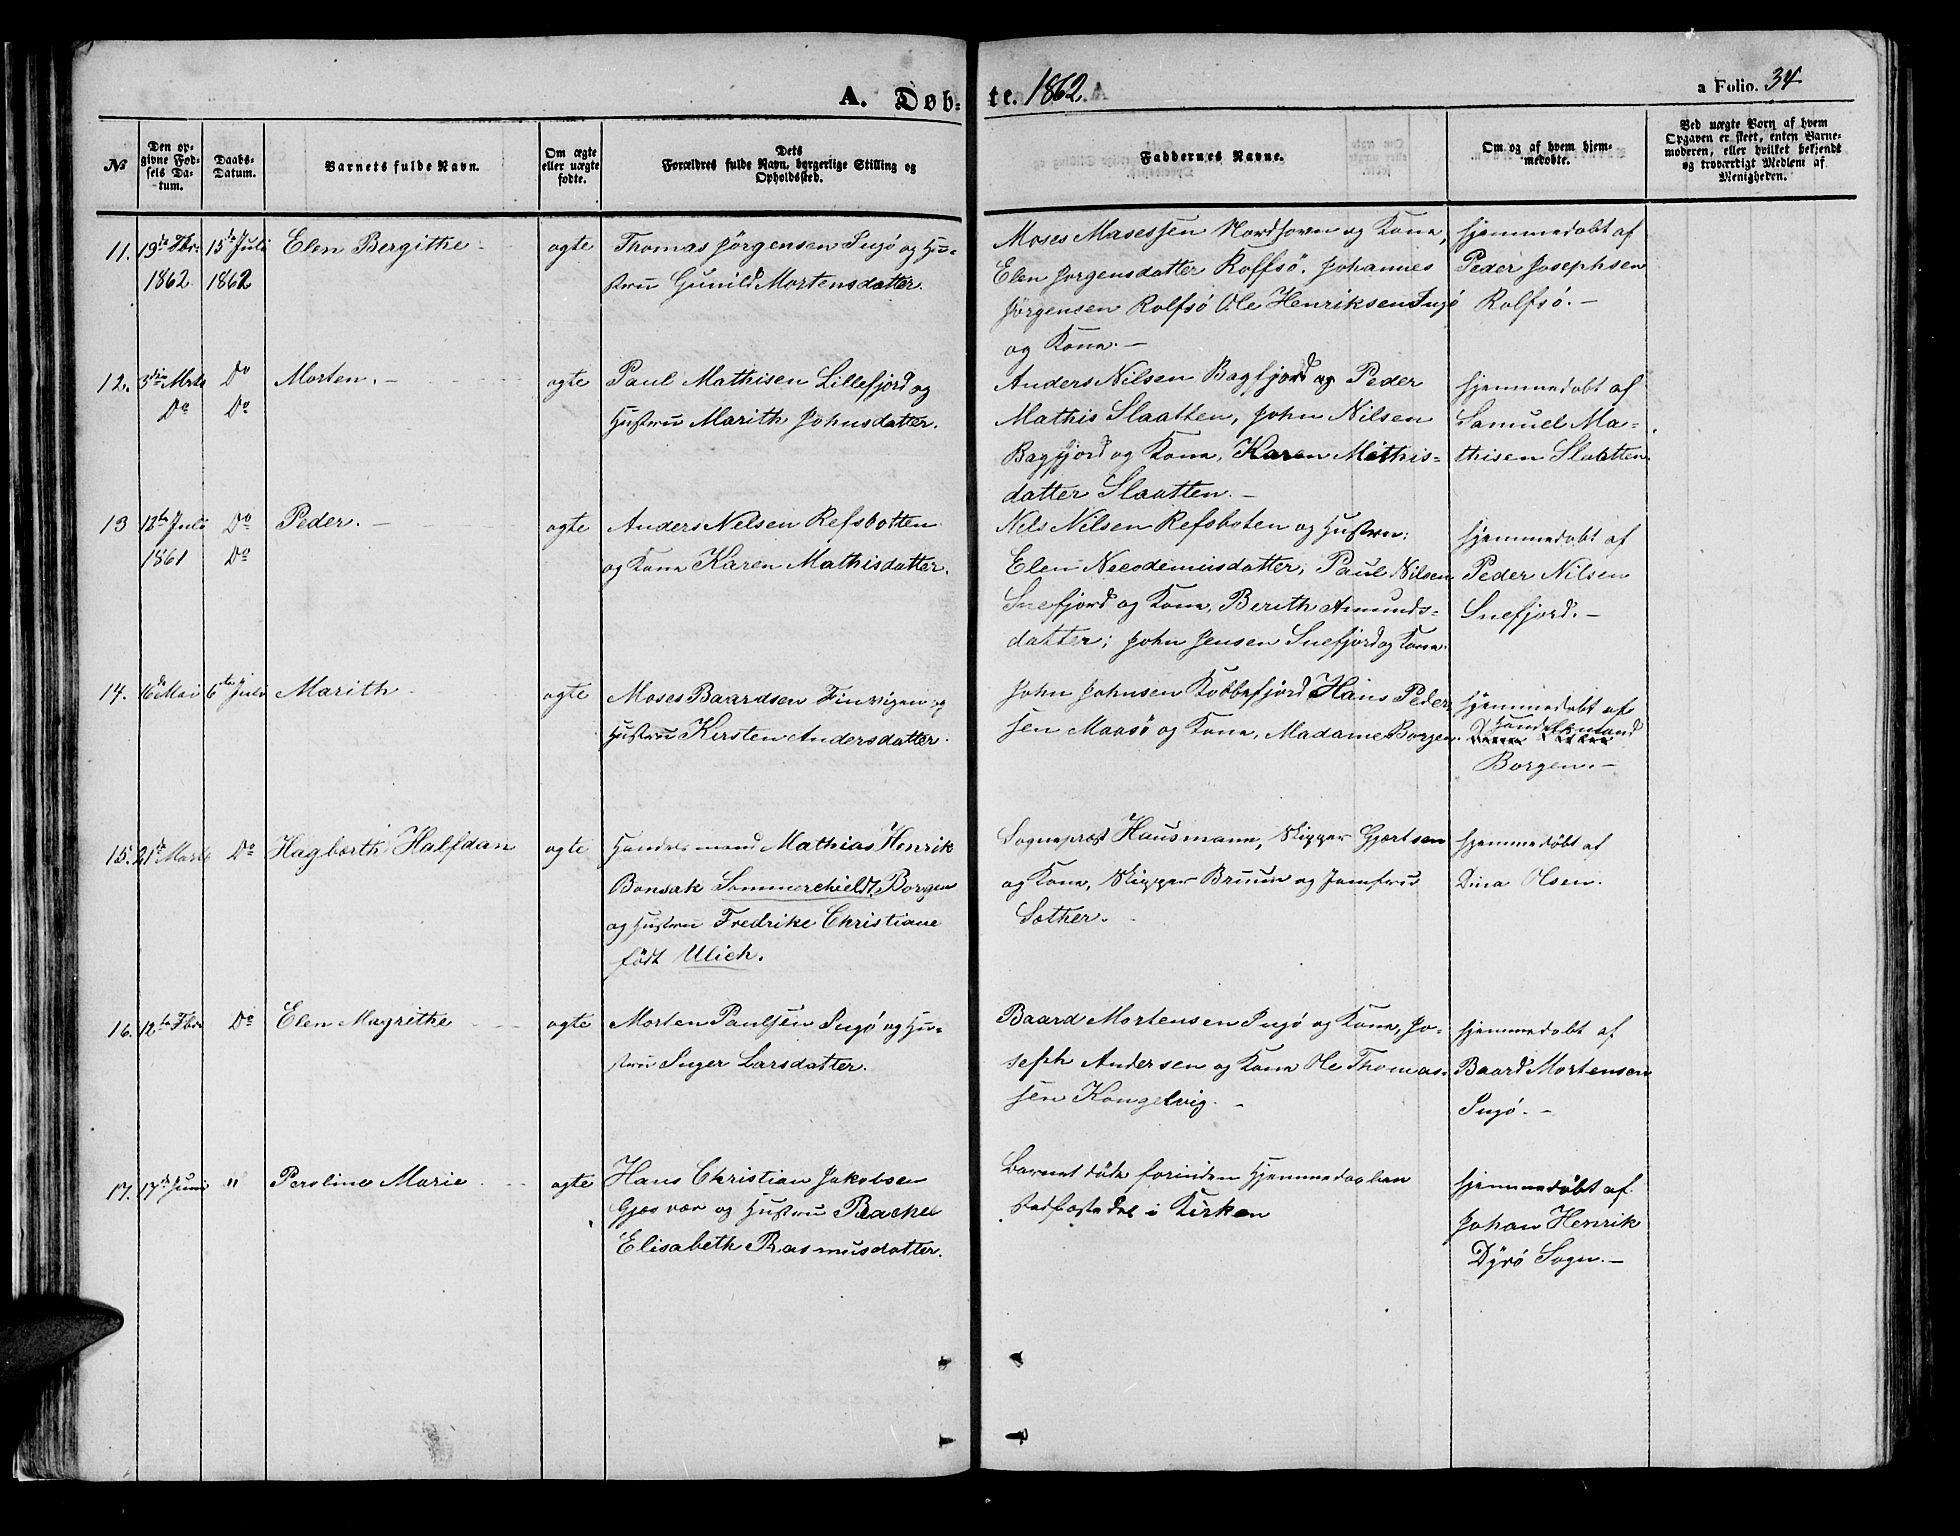 A. Døb- te. 1862. a Folio. 34
№ Den opgivne Fødsels Datum. Daabs-Datum. Barnets fulde Navn. Om ægte eller uægte fødte. Dets Forældres fulde Navn, borgerlige Stilling og Opholdssted. Faddernes Navne. Om og af hvem hjemmedøbte. Ved uægte Børn af hvem Opgaven er skeet, enten Barnemoderen, eller hvilket bekjendt og troværdigt Medlem af Menigheden.
11. 19de Fbr. 15de Juli Elen Bergithe ægte Thomas Jörgensen Ingö og Hu-
1862 1862 stru Gunild Mortensdatter.
Moses Masessen og Kone,
Elen Jorgensdatter Roffsö. Johannes
Jörgensen Rolfsö Ole Henriksen Ingö
og Kone.-
hjemmedøbt af
Peder Josephsen
Rolfsö.-
12. 3die Mrts Do Morten.- ægte Paul Mathisen Lillefjord og
Do Do Hustru Marith Johnsdatter.
Anders Nilsen Bagfjord og Peder
Mathis Slaatten, John Nilsen
Bagfjord og Kone, Karen Mathis-
datter Slaatten.-
hjemmedøbt af
Samuel Ma-
thisen Slaatten.
13 12te Juli Do Peder.- ægte Anders Nelsen Refsbotten
1861 Do og Kone Karen Mathisdatter.
Nils Nilsen Refsboten og Hustru:
Elen Necodemusdatter, Paul Nilsen
Snefjord og Kone, Berith Amunds-
datter; John Jensen Snefjord og Kone.
hjemmedøbt af
Peder Nilsen
Snefjord.-
14. 16de Mai 6te Juli Marith ægte Moses Baardsen Finvigen og
Hustru Kirsten Andersdatter.
John Johnsen Kobbefjord Hans Peder-
sen Maasö og Kone, Madame Borgen.
hjemmedøbt af
Handelsmand
Borgen.-
15. 21de Marts Do Hagbarth Halfdan ægte Handelsmand Mathias Henrik
Bonsak Sommerchieldt Borgen
og Hustru Fredrike Christiane
födt Ulich.
Sognepræst Hausmann, Skipper Gjertsen
og Kone, Skipper Bruun og Jomfru
Sæther.
hjemmedöbt af
Dina Olsen.
16. 12te Fbr. Do Elen Magrithe ægte Morten Paulsen Ingö og Hu-
stru Inger Larsdatter.
Baard Mortensen Ingö og Kone, Jo-
seph Andersen og Kone Ole Thomas-
sen Kongelvig.-
hjemmedøbt af
Baard Mortensen
Ingö.-
17. 17de Juni " Peroline Marie ægte Hans Christian Jakobsen
Gjæsvær og Hustru Rachel
Elisabeth Rasmusdatter.
Barnet döde forinden Hjemmedaaben
stadfæstedes i Kirken
hjemmedöbt af
Johan Henrik
Dyrö Sogn.-